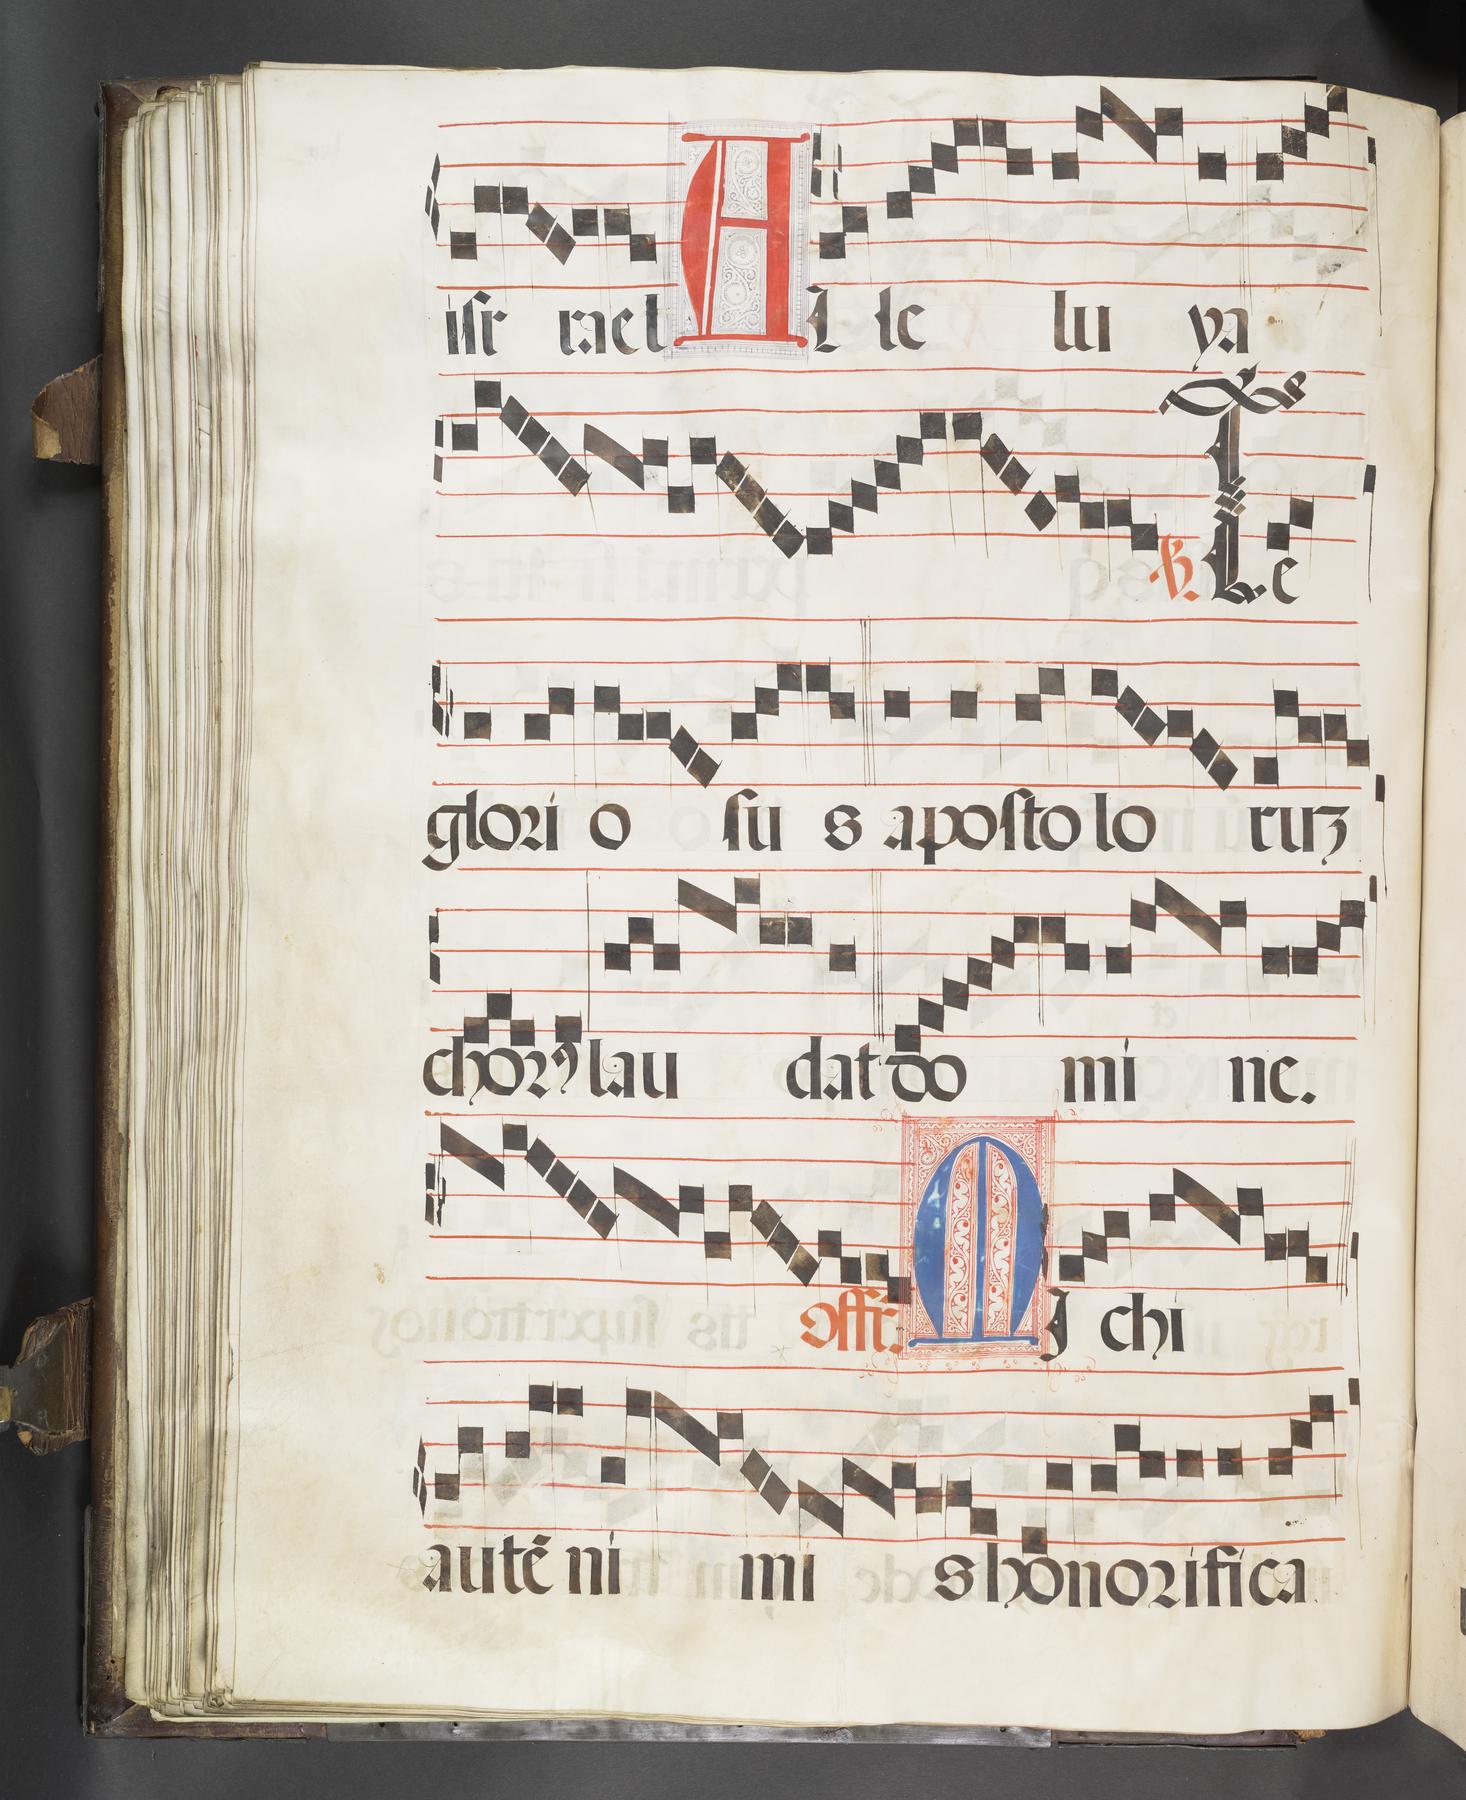 isr rael Al le lu ya
℣. Te
glori o su s apostolo ruʒ
chorꝰ lau dat do mi ne.
Offr̃. Mi chi
autē ni mi s honorifica